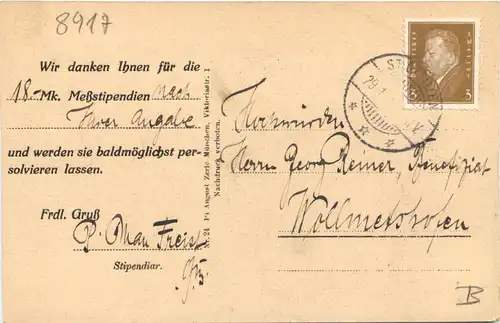 8917
Wir danken Ihnen für die
18.- Mk. Meßstipendien nach
Ihrer Angabe
und werden sie baldmöglichst per-
solvieren lassen.
Frdl. Gruß
P. Max Freist
Stipendiar.
Nr. 24 P. August Zerle München, Viktoriastr. 1
Nachdruck verboten.
Deutsches Reich
3 3
29.1.
Hochwürden
Herrn Georg Remer, Benefiziat
Wollmetshofen
B